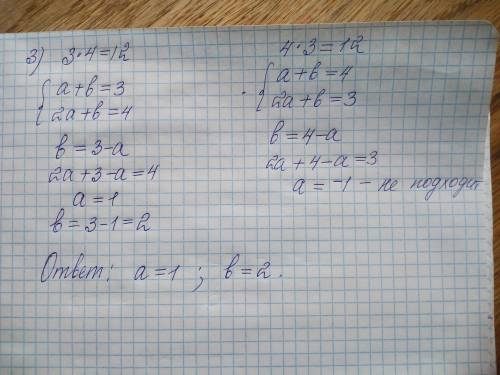 3) 3·4=12
a+b=3
2a+b=4
b=3-a
2a+3-a=4
a=1
b=3-1=2
4·3=12
a+b=4
2a+b=3
b=4-a
2a+4-a=3
a=-1 - не подходит
Ответ: a=1; b=2.